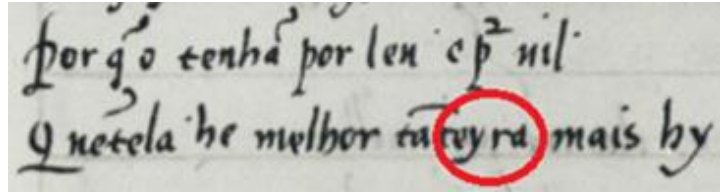 por q̃ o tenhã por len
q nẽtela he melhor tãteyra mais hy